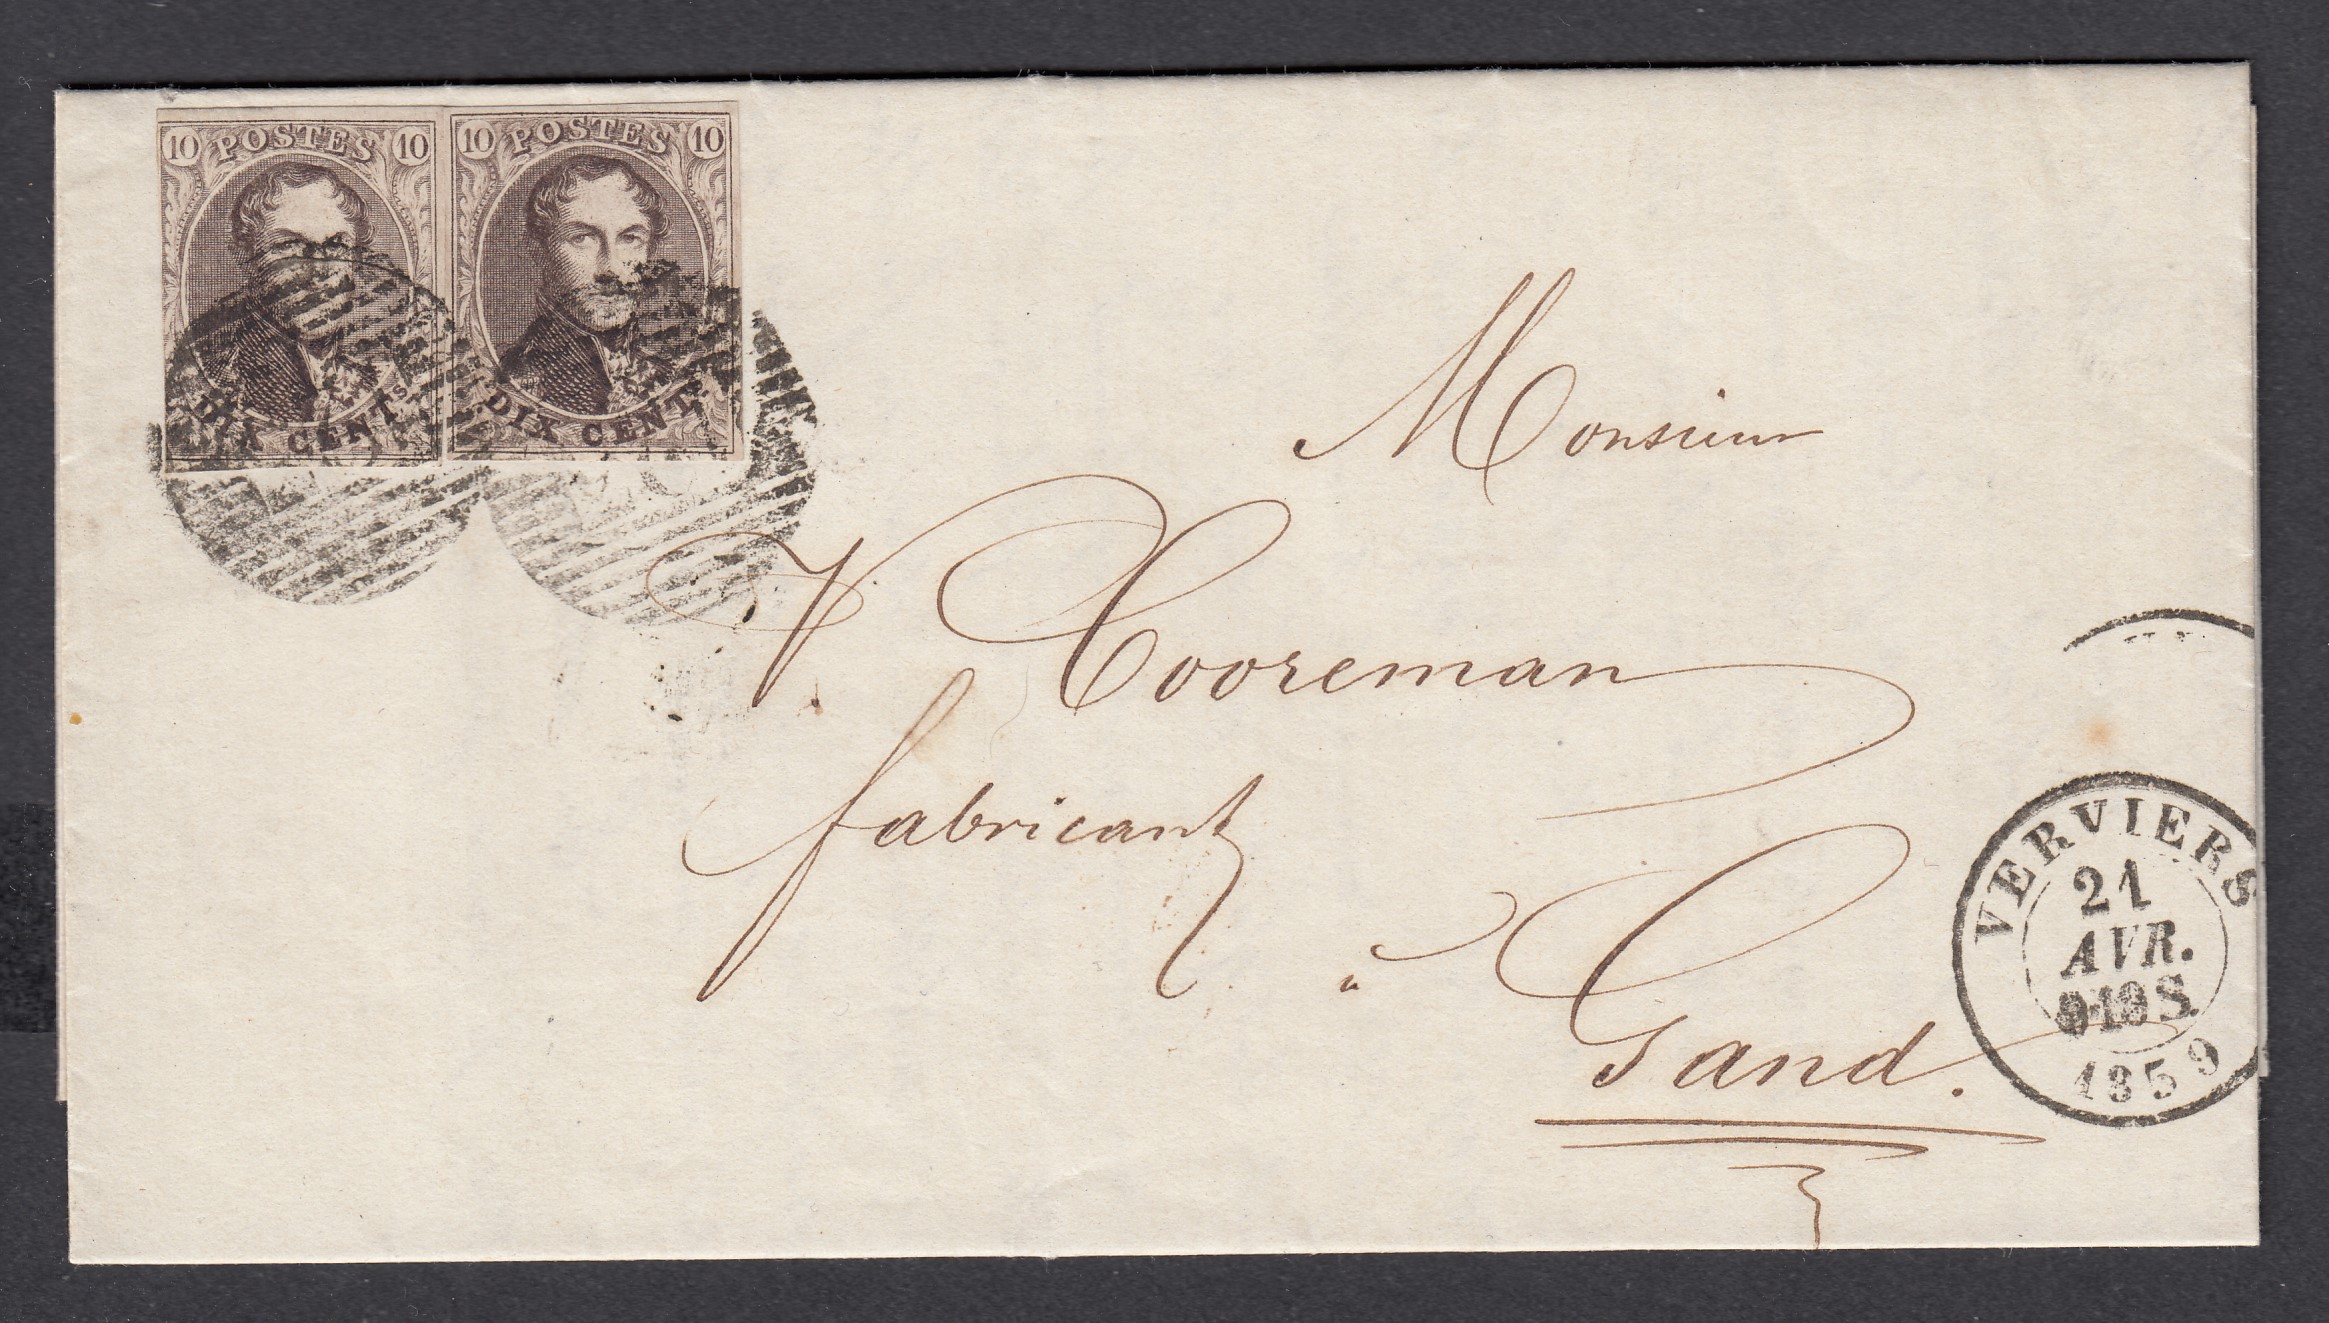 10 POSTES 10
DIX CENTS
10 POSTES 10
DIX CENTS
Monsieur
V. Cooreman
fabricant
à
Gand.
VERVIERS
21
AVR.
1859